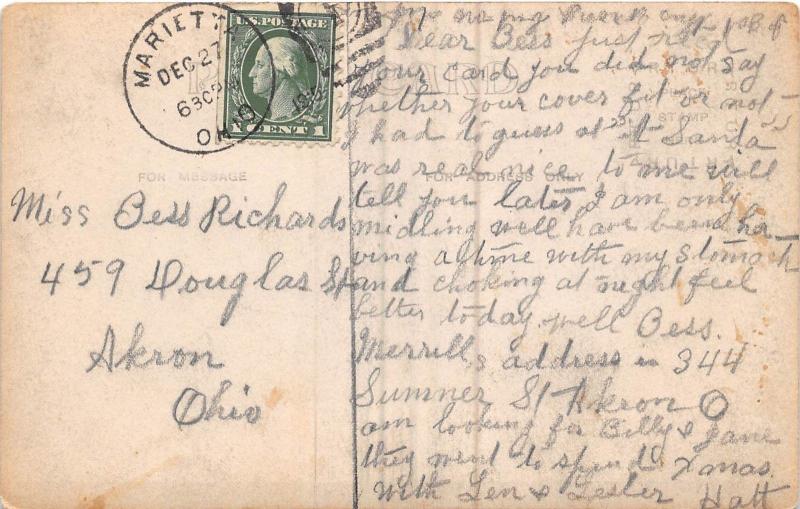 MARIETTA
DEC 27
630P
OHIO
U.S. POSTAGE
1 CENT 1
CARD
FOR MESSAGE
FOR ADDRESS ONLY
STAMP
Miss Bess Richards
459 Douglas St
Akron
Ohio
Dear Bess just
your card you did not say
whether your cover fit or not
I had to guess at it Santa
was real nice to me will
tell you later I am only
midling well have been ha-
ving a time with my stomach
and choking at night feel
better today well Bess.
Merrill s address is 344
Summer St Akron O
am looking for Billy & Jane
they went to spend Xmas.
with Len & Lesler Hatt